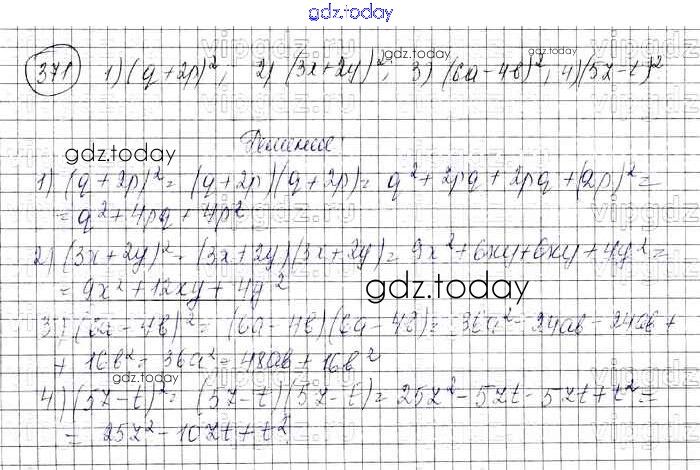 gdz.today
371 1) (q+2p)², 2) (3x+2y)², 3) (6a-4b)², 4) (5z-t)²
gdz.today
Решение
gdz.today
1) (q+2p)²= (q+2p)(q+2p)= q²+2pq+2pq+(2p)²=
= q²+4pq+4p²
2) (3x+2y)²= (3x+2y)(3x+2y)= 9x²+6xy+6xy+4y²=
= 9x²+12xy+4y²
gdz.today
3) (6a-4b)²= (6a-4b)(6a-4b)= 36a²-24ab-24ab+
+ 16b²= 36a²=48ab+16b²
gdz.today
4) (5z-t)²= (5z-t)(5z-t)= 25z²-5zt-5zt+t²=
= 25z²-10zt+t²